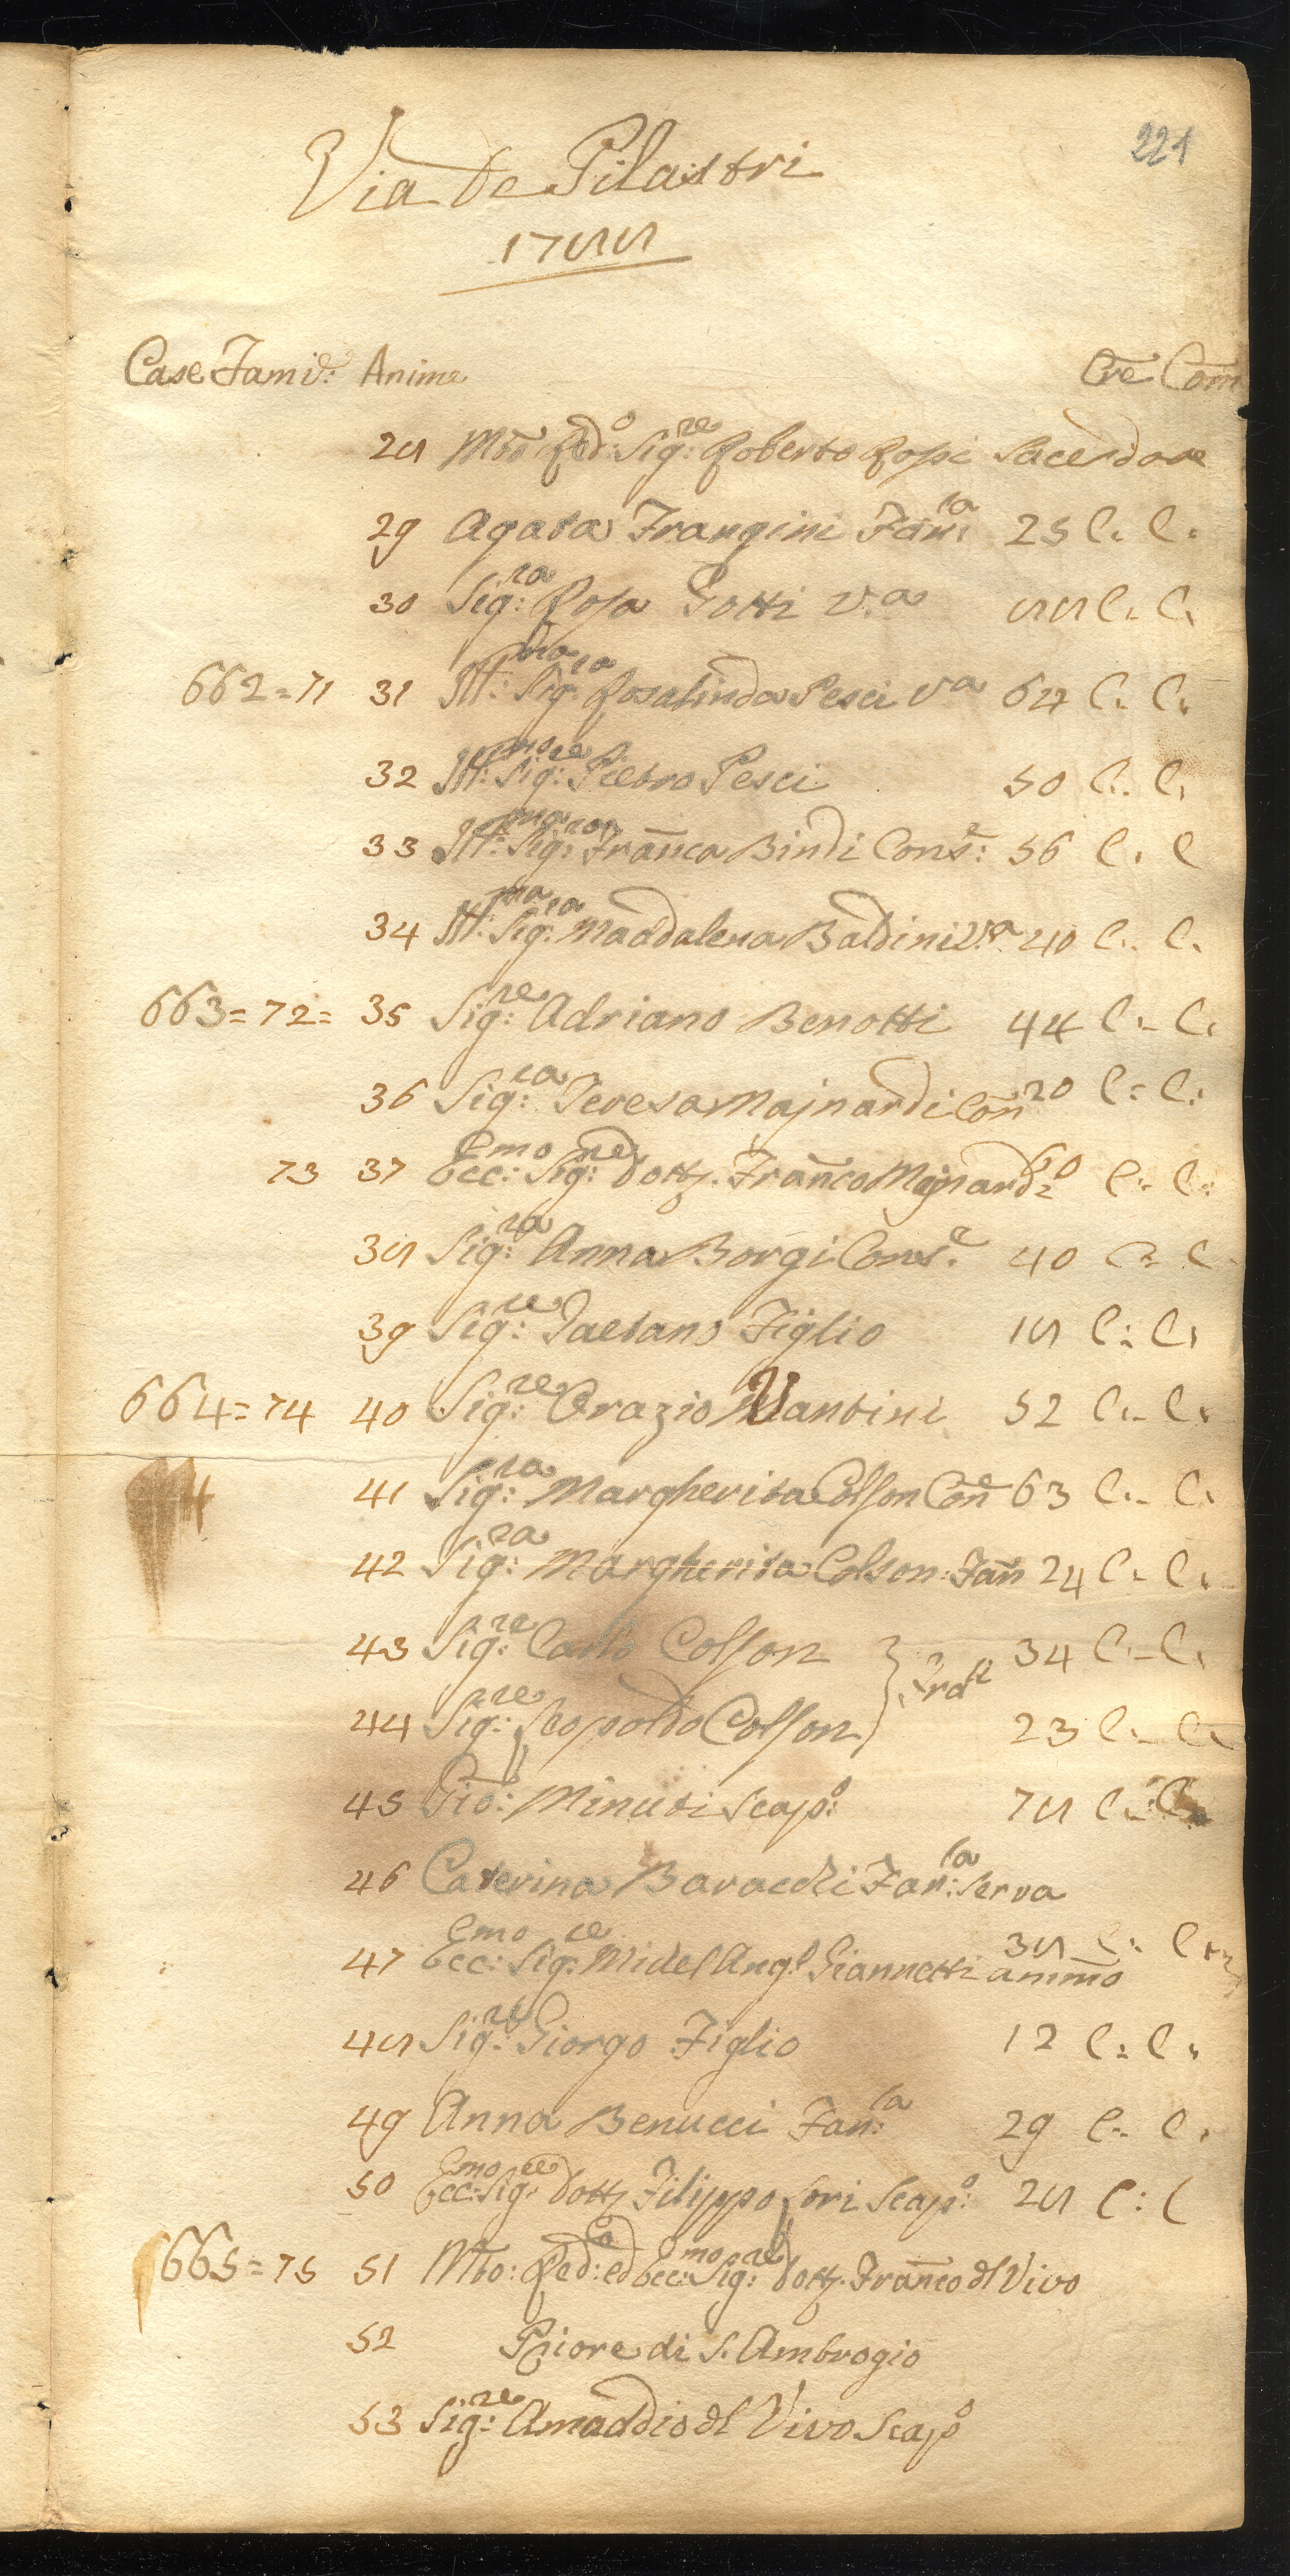 221
Via de Pilastri
1788
Case Famie: Anime Cre Com
28 Mto Red:o Sig:re Roberto Rossi Sacerdote
29 Agata Frangini Fan:la 25 C. C.
30 Sig:ra Rosa Gotti V.a 88 C. C.
662=71 31 Ill:ma Sig:ra Rosalinda Pesci Va 64 C. C.
32 Ill:mo Sig:re Pietro Pesci 50 C. C.
33 Ill:ma Sig:ra Franca Bindi Cons:e 56 C. C
34 Ill:ma Sig:ra Maddalena Baldini V.a 40 C. C.
663=72= 35 Sig:re Adriano Benotti 44 C. C.
36 Sig:ra Teresa Majnardi Con 20 C: C:
73 37 Ecc:emo Sig:re Dott. Franco Majnardi 60 C: C:
38 Sig:ra Anna Borgi Cons.e 40 C: C
39 Sig:re Gaetano Figlio 18 C: C.
664=74 40 Sig:re Orazio Vantini 52 C. C.
41 Sig:ra Margherita Colson Cone 63 C. C.
42 Sig:ra Margherita Colson Fan 24 C. C.
43 Sig:re Carlo Colson } Frali 34 C. C.
44 Sig:re Leopoldo Colson 23 C. C.
45 Gio: Minuti Scap:o 78 C. C.
46 Caterina Baracchi Fan:la Serva
47 Ecc:emo Sig:re Michel Angl Giannetti ammo 38 C: C.
48 Sig:re Giorgo Figlio 12 C: C.
49 Anna Benucci Fan:la 29 C. C.
50 Ecc:emo Sig:re Dott Filippo Lori Scap:o 28 C: C
665=75 51 Mto: Red:o ed Ecc:mo Sig:re Dott. Franco dl Vivo
52 Priore di S. Ambrogio
53 Sig:re Amaddio dl Vivo Scapo